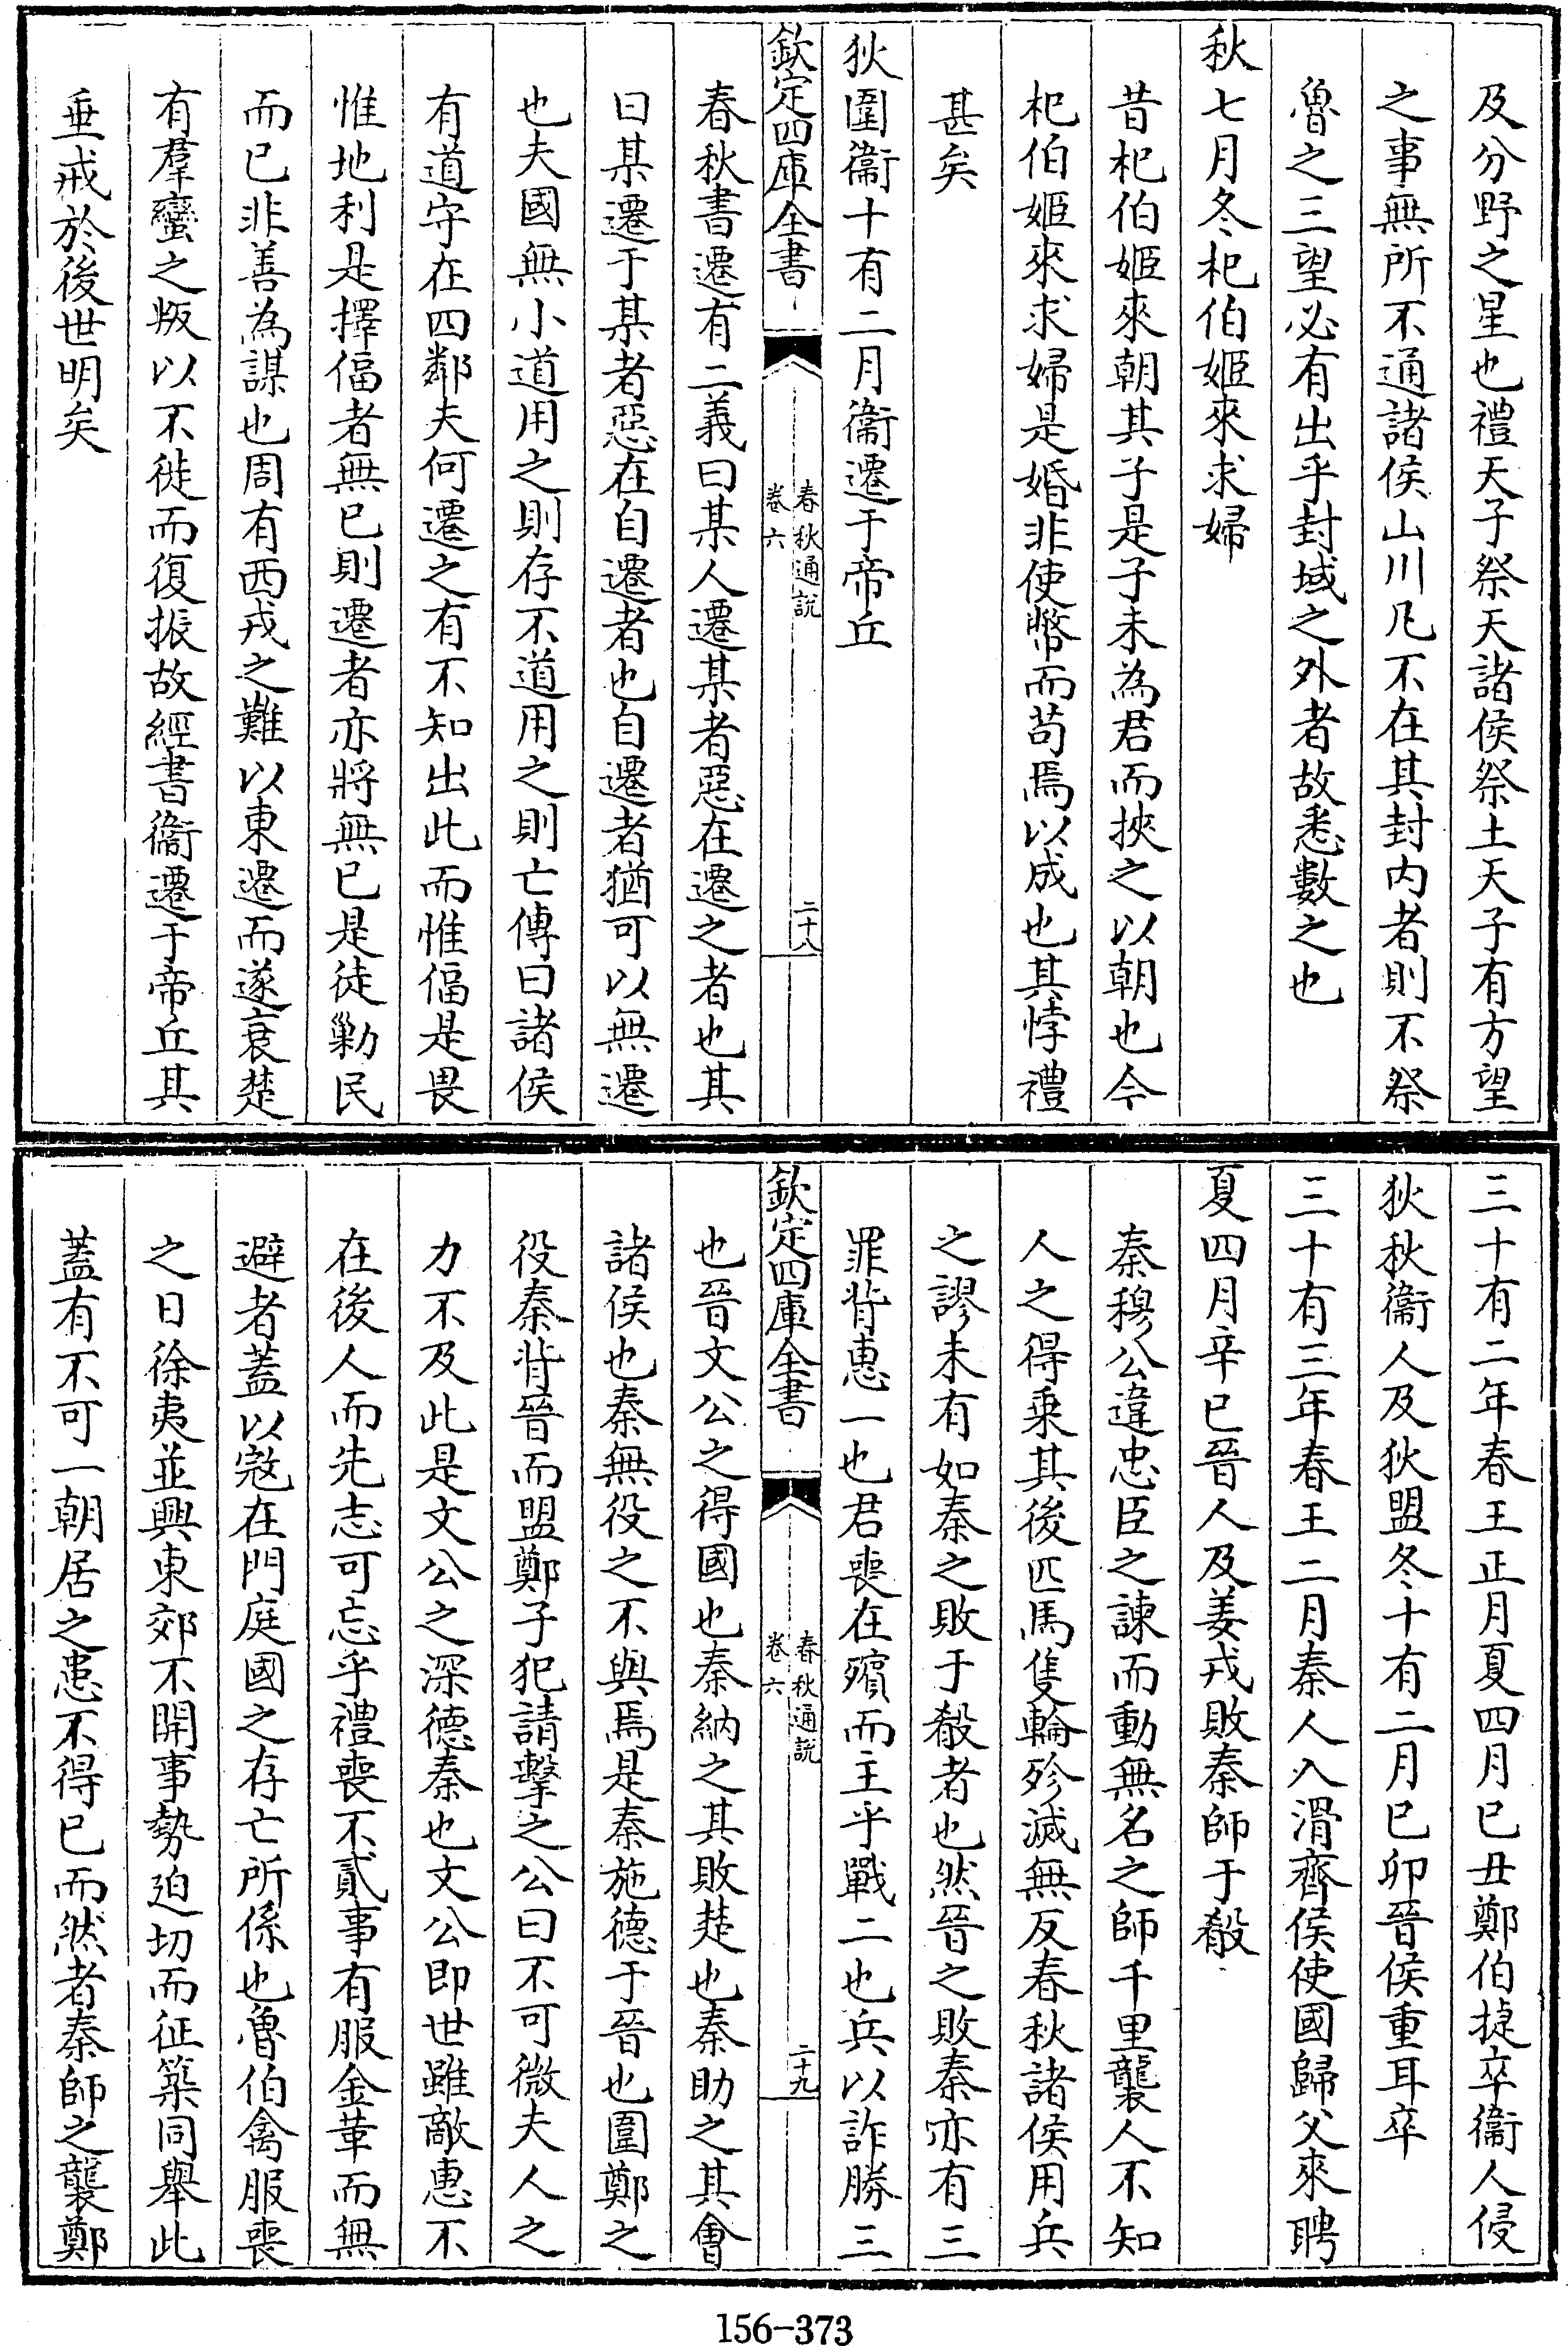 及分野之星也禮天子祭天諸侯祭土天子有方望
之事無所不通諸侯山川凡不在其封内者則不祭
魯之三望必有出乎封域之外者故悉數之也
秋七月冬杞伯姬來求婦
昔杞伯姬來朝其子是子未為君而挾之以朝也今
杞伯姬來求婦是婚非使幣而苟焉以成也其悖禮
甚矣
狄圍衞十有二月衞遷于帝丘
欽定四庫全書
春秋通說
卷六
二十八
春秋書遷有二義曰某人遷某者惡在遷之者也其
曰某遷于某者惡在自遷者也自遷者猶可以無遷
也夫國無小道用之則存不道用之則亡傳曰諸侯
有道守在四鄰夫何遷之有不知出此而惟偪是畏
惟地利是擇偪者無已則遷者亦將無已是徒勦民
而已非善為謀也周有西戎之難以東遷而遂衰楚
有羣蠻之叛以不徙而復振故經書衞遷于帝丘其
垂戒於後世明矣
三十有二年春王正月夏四月已丑鄭伯捷卒衞人侵
狄秋衞人及狄盟冬十有二月已卯晉侯重耳卒
三十有三年春王二月秦人入滑齊侯使國歸父來聘
夏四月辛已晉人及姜戎敗秦師于殽
秦穆公違忠臣之諫而動無名之師千里襲人不知
人之得乗其後匹馬隻輪殄滅無反春秋諸侯用兵
之謬未有如秦之敗于殽者也然晉之敗秦亦有三
罪背惠一也君喪在殯而主乎戰二也兵以詐勝三
欽定四庫全書
春秋通說
卷六
二十九
也晉文公之得國也秦納之其敗楚也秦助之其會
諸侯也秦無役之不與焉是秦施德于晉也圍鄭之
役秦背晉而盟鄭子犯請擊之公曰不可微夫人之
力不及此是文公之深德秦也文公即世雖敵惠不
在後人而先志可忘乎禮喪不貳事有服金革而無
避者蓋以寇在門庭國之存亡所係也魯伯禽服喪
之日徐夷並興東郊不開事勢迫切而征築同舉此
蓋有不可一朝居之患不得已而然者秦師之襲鄭
156-373